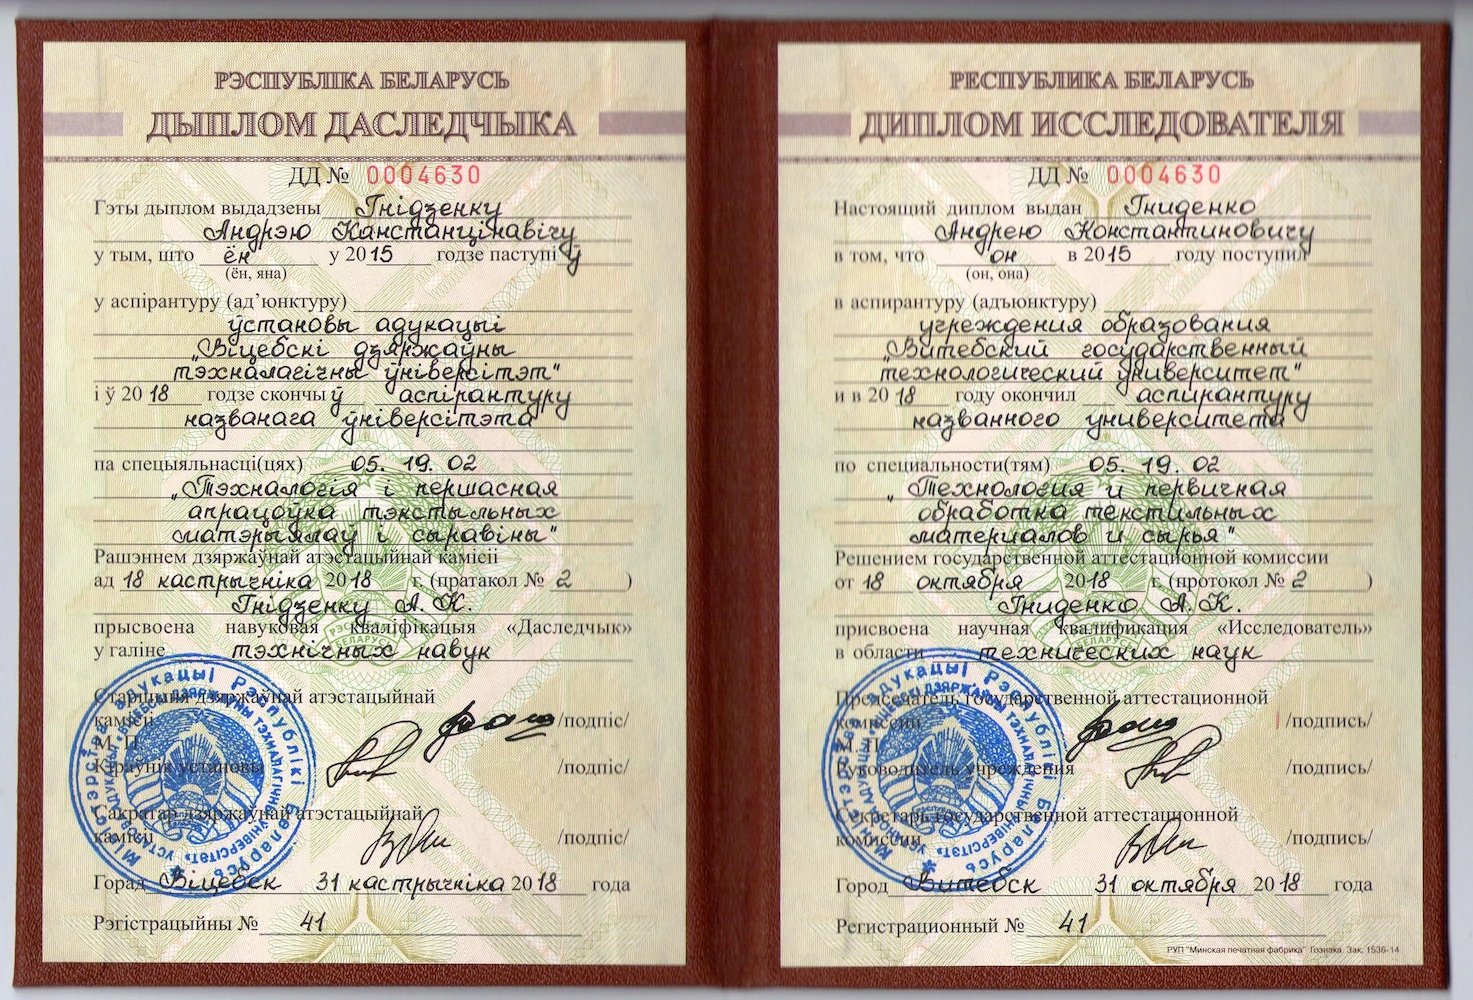 РЭСПУБЛІКА БЕЛАРУСЬ
ДЫПЛОМ ДАСЛЕДЧЫКА
ДД № 0004630
Гэты дыплом выдадзены Гнідзенку
Андрэю Канстанцінавічу
у тым, што ён у 2015 годзе паступіў
(ён, яна)
у аспірантуру (ад’юнктуру)
ўстановы адукацыі
„Віцебскі дзяржаўны
тэхналагічны ўніверсітэт"
і ў 2018 годзе скончыў аспірантуру
названага ўніверсітэта
па спецыяльнасці(цях) 05. 19. 02
„Тэхналогія і першасная
апрацоўка тэкстыльных
матэрыялаў і сыравіны"
Рашэннем дзяржаўнай атэстацыйнай камісіі
ад 18 кастрычніка 2018 г. (пратакол № 2 )
Гнідзенку А. К.
прысвоена навуковая кваліфікацыя «Даследчык»
у галіне тэхнічных навук
Старшыня дзяржаўнай атэстацыйнай
камісіі /подпіс/
М. П.
Кіраўнік установы /подпіс/
Сакратар дзяржаўнай атэстацыйнай
камісіі /подпіс/
Горад Віцебск 31 кастрычніка 2018 года
Рэгістрацыйны № 41
РЕСПУБЛИКА БЕЛАРУСЬ
ДИПЛОМ ИССЛЕДОВАТЕЛЯ
ДД № 0004630
Настоящий диплом выдан Гниденко
Андрею Константиновичу
в том, что он в 2015 году поступил
(он, она)
в аспирантуру (адъюнктуру)
учреждения образования
„Витебский государственный
технологический университет"
и в 2018 году окончил аспирантуру
названного университета
по специальности(тям) 05. 19. 02
„Технология и первичная
обработка текстильных
материалов и сырья"
Решением государственной аттестационной комиссии
от 18 октября 2018 г. (протокол № 2 )
Гниденко А. К.
присвоена научная квалификация «Исследователь»
в области технических наук
Председатель государственной аттестационной
комиссии /подпись/
М. П.
Руководитель учреждения /подпись/
Секретарь государственной аттестационной
комиссии /подпись/
Город Витебск 31 октября 2018 года
Регистрационный № 41
РУП "Минская печатная фабрика" Гознака. Зак. 1536-14